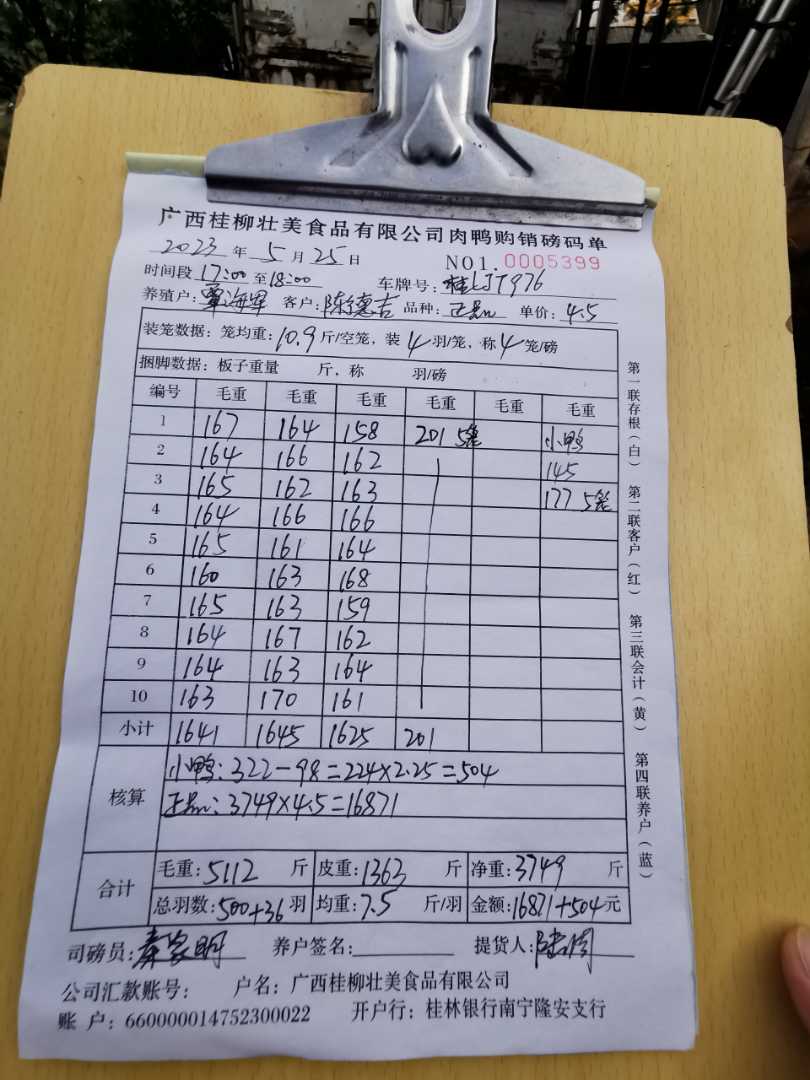 广西桂柳壮美食品有限公司肉鸭购销磅码单
2023 年 5 月 25 日 NO1. 0005399
时间段 17:00 至 18:00 车牌号: 桂LJT976
养殖户: 覃海军 客户: 陈德吉 品种: 正品 单价: 4.5
装笼数据: 笼均重: 10.9 斤/空笼, 装 4 羽/笼, 称 4 笼/磅
捆脚数据: 板子重量 斤, 称 羽/磅
编号 毛重 毛重 毛重 毛重 毛重 毛重
1 167 164 158 201 5笼 小鸭
2 164 166 162 145
3 165 162 163 177 5笼
4 164 166 166
5 165 161 164
6 160 163 168
7 165 163 159
8 164 167 162
9 164 163 164
10 163 170 161
小计 1641 1645 1625 201
核算
小鸭: 322-98=224×2.25=504
正品: 3749×4.5=16871
合计
毛重: 5112 斤 皮重: 1363 斤 净重: 3749 斤
总羽数: 500+36 羽 均重: 7.5 斤/羽 金额: 16871+504 元
司磅员: 秦家明 养户签名: 提货人:
公司汇款账号: 户名: 广西桂柳壮美食品有限公司
账 户: 660000014752300022 开户行: 桂林银行南宁隆安支行
第一联存根(白) 第二联客户(红) 第三联会计(黄) 第四联养户(蓝)